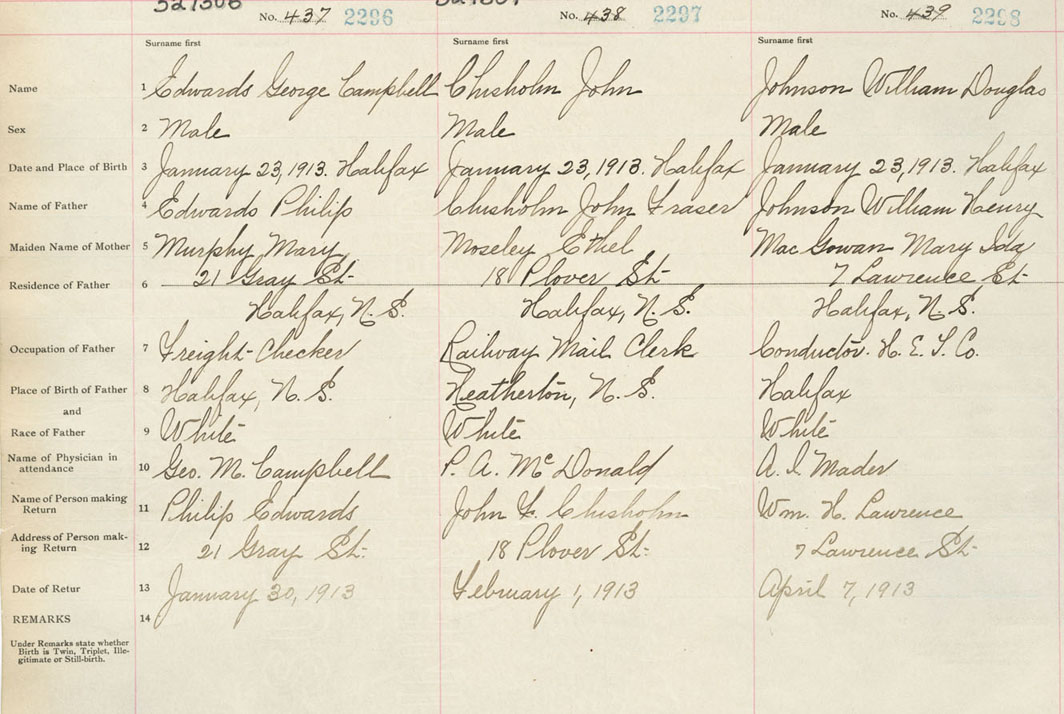 No. 437 2296 No. 438 2297 No. 439 2298
Surname first Surname first Surname first
Name 1 Edwards George Campbell Chisholm John Johnson William Douglas
Sex 2 Male Male Male
Date and Place of Birth 3 January 23, 1913. Halifax January 23, 1913. Halifax January 23, 1913. Halifax
Name of Father 4 Edwards Philip Chisholm John Fraser Johnson William Henry
Maiden Name of Mother 5 Murphy Mary Moseley Ethel Mac Gowan Mary Ida
Residence of Father 6 21 Gray St- 18 Plover St- 7 Lawrence St-
Halifax, N. S. Halifax, N. S. Halifax, N. S.
Occupation of Father 7 Freight-Checker Railway Mail Clerk Conductor. H. E. T. Co.
Place of Birth of Father 8 Halifax, N. S. Heatherton, N. S. Halifax
and
Race of Father 9 White White White
Name of Physician in
attendance 10 Geo. M. Campbell P. A. McDonald A. I Mader
Name of Person making
Return 11 Philip Edwards John F. Chisholm Wm. H. Lawrence
Address of Person mak-
ing Return 12 21 Gray St- 18 Plover St- 7 Lawrence St-
Date of Retur 13 January 30, 1913 February 1, 1913 April 7, 1913
REMARKS 14
Under Remarks state whether
Birth is Twin, Triplet, Ille-
gitimate or Still-birth.